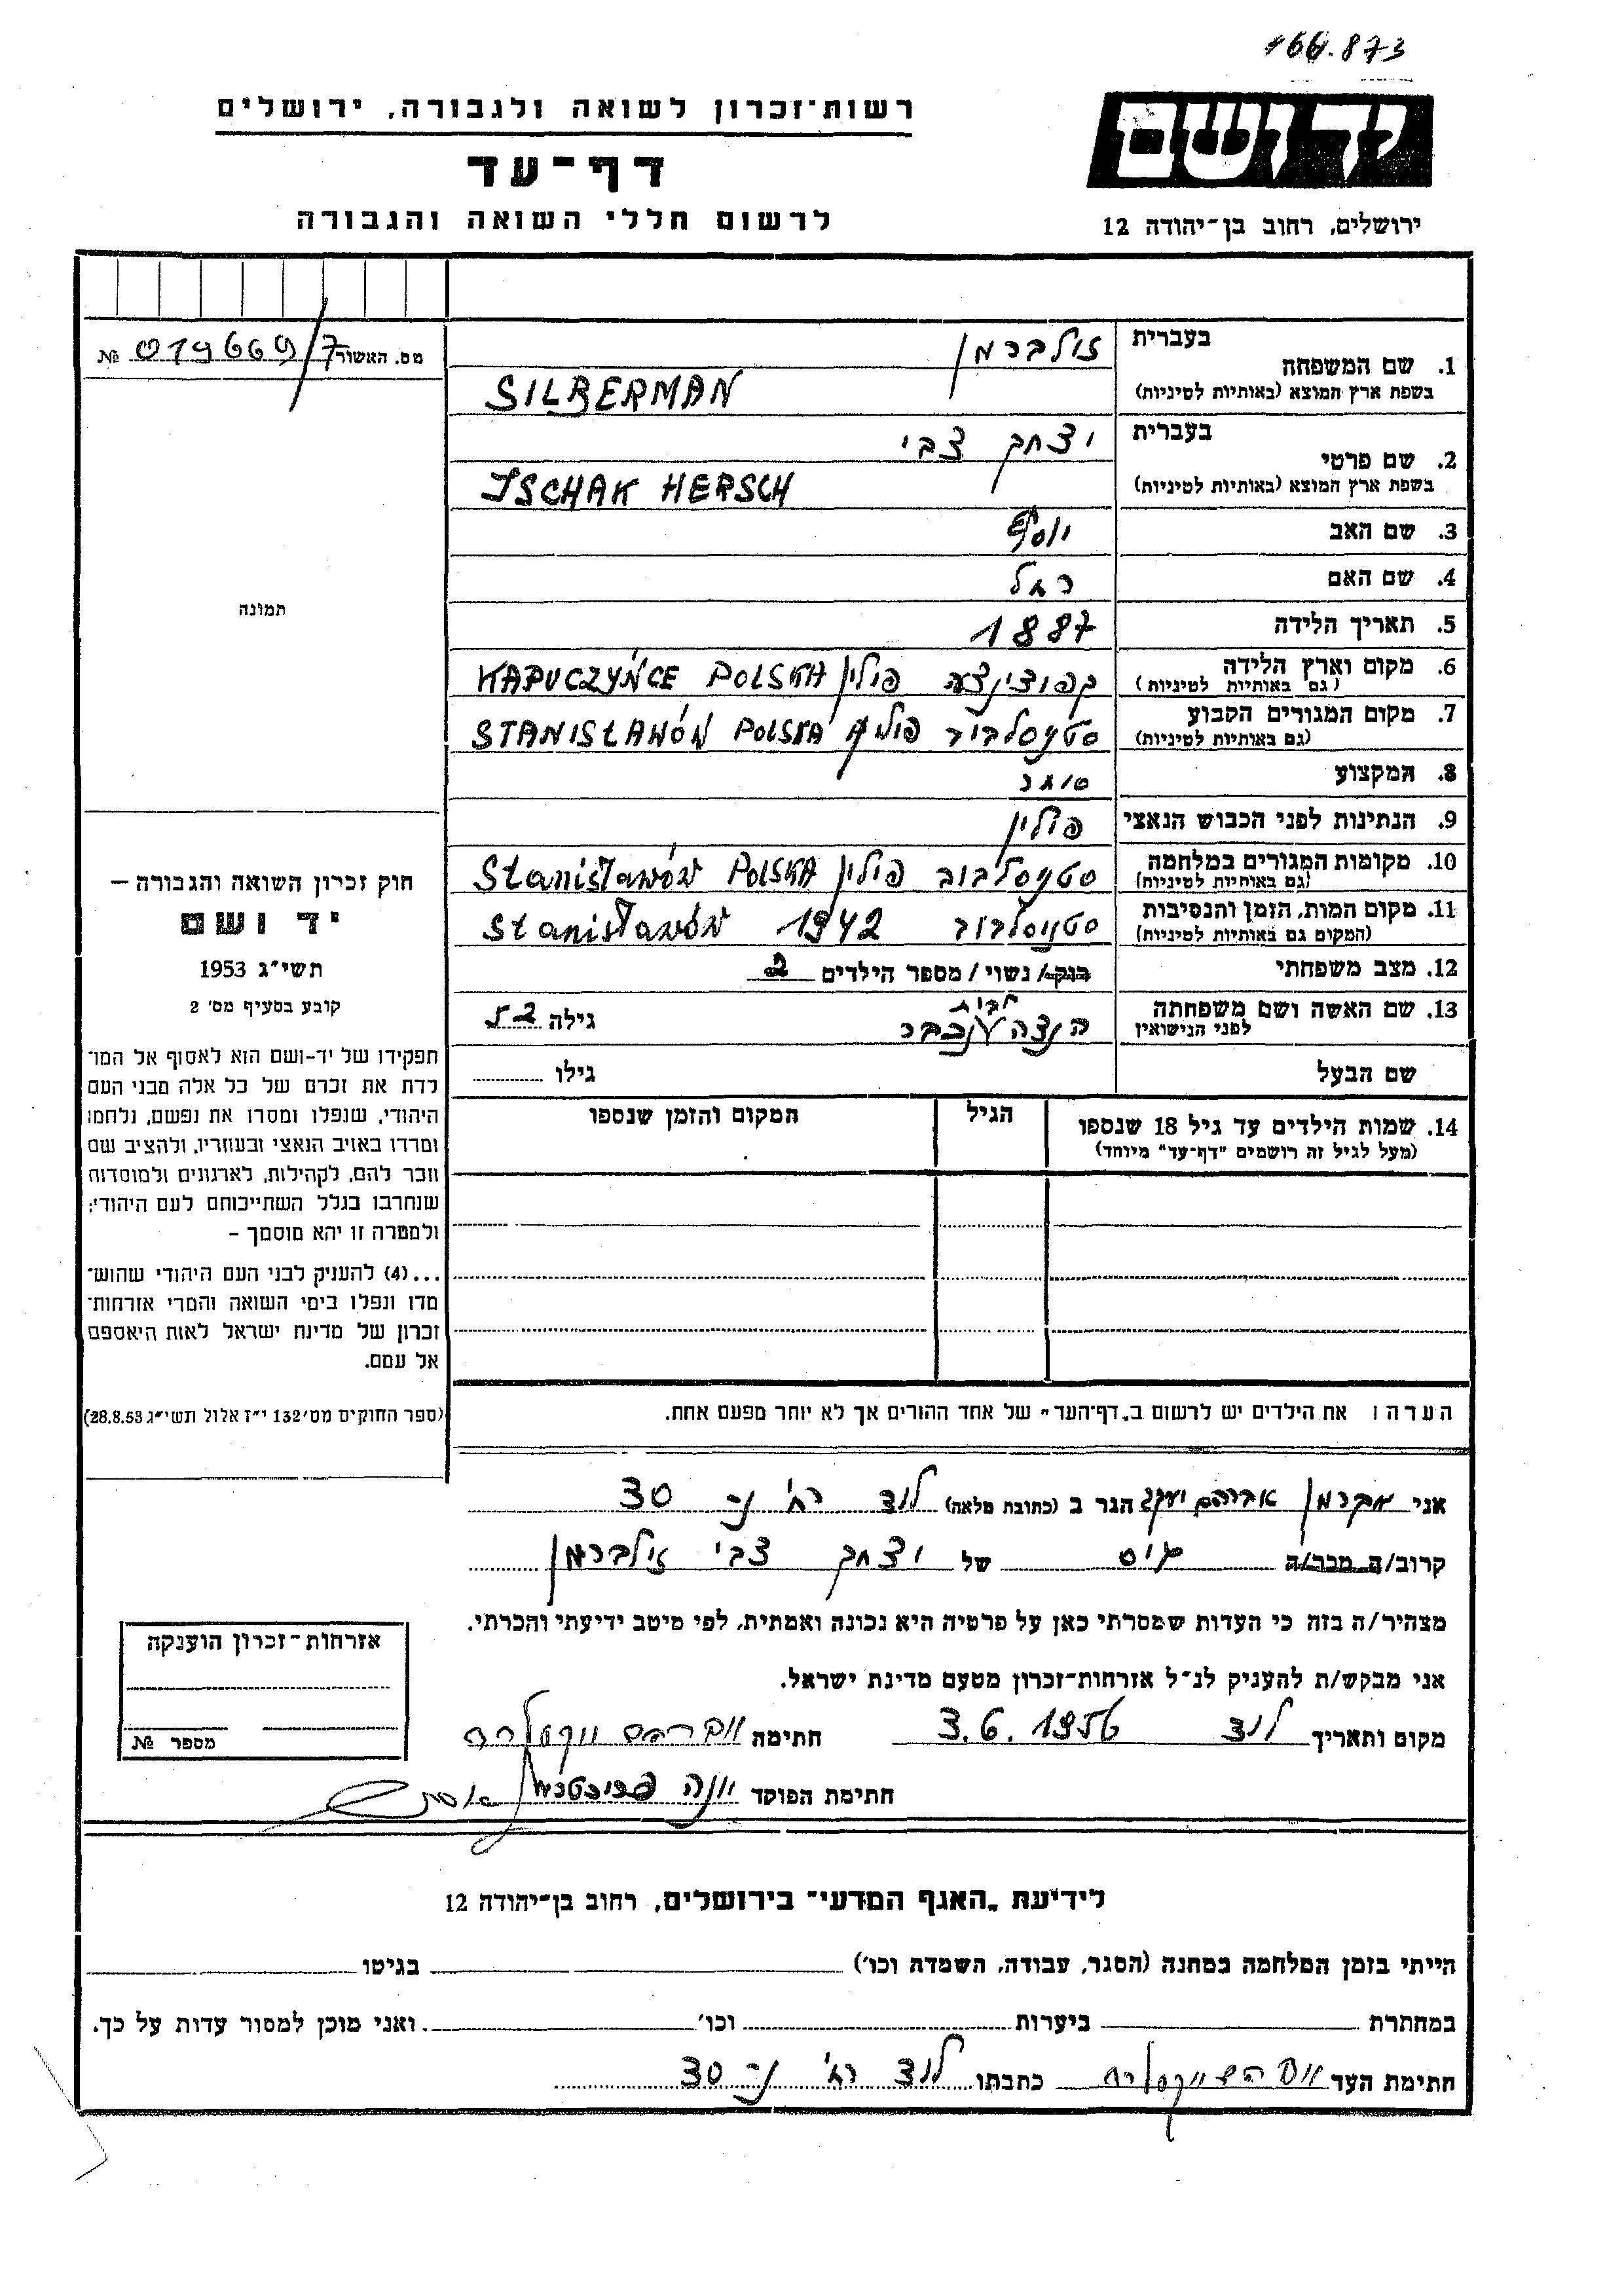 166.873
יד ושם
ירושלים, רחוב בן־יהודה 12
רשות־זכרון לשואה ולגבורה, ירושלים
דף־עד
לרשום חללי השואה והגבורה
מס. האשור № 019669/7
1. שם המשפחה
בעברית זילברמן
בשפת ארץ המוצא (באותיות לטיניות) SILBERMAN
2. שם פרטי
בעברית יצחק צבי
בשפת ארץ המוצא (באותיות לטיניות) ISCHAK HERSCH
3. שם האב יוסף
4. שם האם רחל
5. תאריך הלידה 1887
6. מקום וארץ הלידה (גם באותיות לטיניות) קפוצינצה פולין KAPUCZYŃCE POLSKA
7. מקום המגורים הקבוע (גם באותיות לטיניות) סטניסלבוב פולין STANISŁAWÓW POLSKA
8. המקצוע סוחר
9. הנתינות לפני הכבוש הנאצי פולין
10. מקומות המגורים במלחמה (גם באותיות לטיניות) סטניסלבוב פולין Stanisławów POLSKA
11. מקום המות, הזמן והנסיבות (המקום גם באותיות לטיניות) סטניסלבוב 1942 Stanisławów
12. מצב משפחתי רוק/ נשוי/ מספר הילדים 2
13. שם האשה ושם משפחתה לפני הנישואין לבית גילה 52
שם הבעל גילו
14. שמות הילדים עד גיל 18 שנספו הגיל המקום והזמן שנספו
(מעל לגיל זה רושמים "דף־עד" מיוחד)
הערה: את הילדים יש לרשום ב„דף־העד" של אחד ההורים אך לא יותר מפעם אחת.
תמונה
חוק זכרון השואה והגבורה –
יד ושם
תשי״ג 1953
קובע בסעיף מס׳ 2
תפקידו של יד-ושם הוא לאסוף אל המו־
לדת את זכרם של כל אלה מבני העם
היהודי, שנפלו ומסרו את נפשם, נלחמו
ומרדו באויב הנאצי ובעוזריו, ולהציב שם
וזכר להם, לקהילות, לארגונים ולמוסדות
שנחרבו בגלל השתייכותם לעם היהודי;
ולמטרה זו יהא מוסמך –
...(4) להעניק לבני העם היהודי שהוש־
מדו ונפלו בימי השואה והמרי אזרחות־
זכרון של מדינת ישראל לאות היאספם
אל עמם.
(ספר החוקים מס׳ 132 י״ז אלול תשי״ג 28.8.53)
אני אברהם הגר ב (כתובת מלאה) לוד רח׳ 30
קרוב/ה מכר/ה גיס של יצחק צבי זילברמן
מצהיר/ה בזה כי העדות שמסרתי כאן על פרטיה היא נכונה ואמתית, לפי מיטב ידיעתי והכרתי.
אני מבקש/ת להעניק לנ״ל אזרחות־זכרון מטעם מדינת ישראל.
מקום ותאריך לוד 3.6.1956 חתימה
חתימת הפוקד יונה
אזרחות־זכרון הוענקה
מספר №
לידיעת „האגף המדעי" בירושלים, רחוב בן־יהודה 12
הייתי בזמן המלחמה במחנה (הסגר, עבודה, השמדה וכו׳) בגיטו
במחתרת ביערות וכו׳ ואני מוכן למסור עדות על כך.
חתימת העד כתבתו לוד רח׳ 30